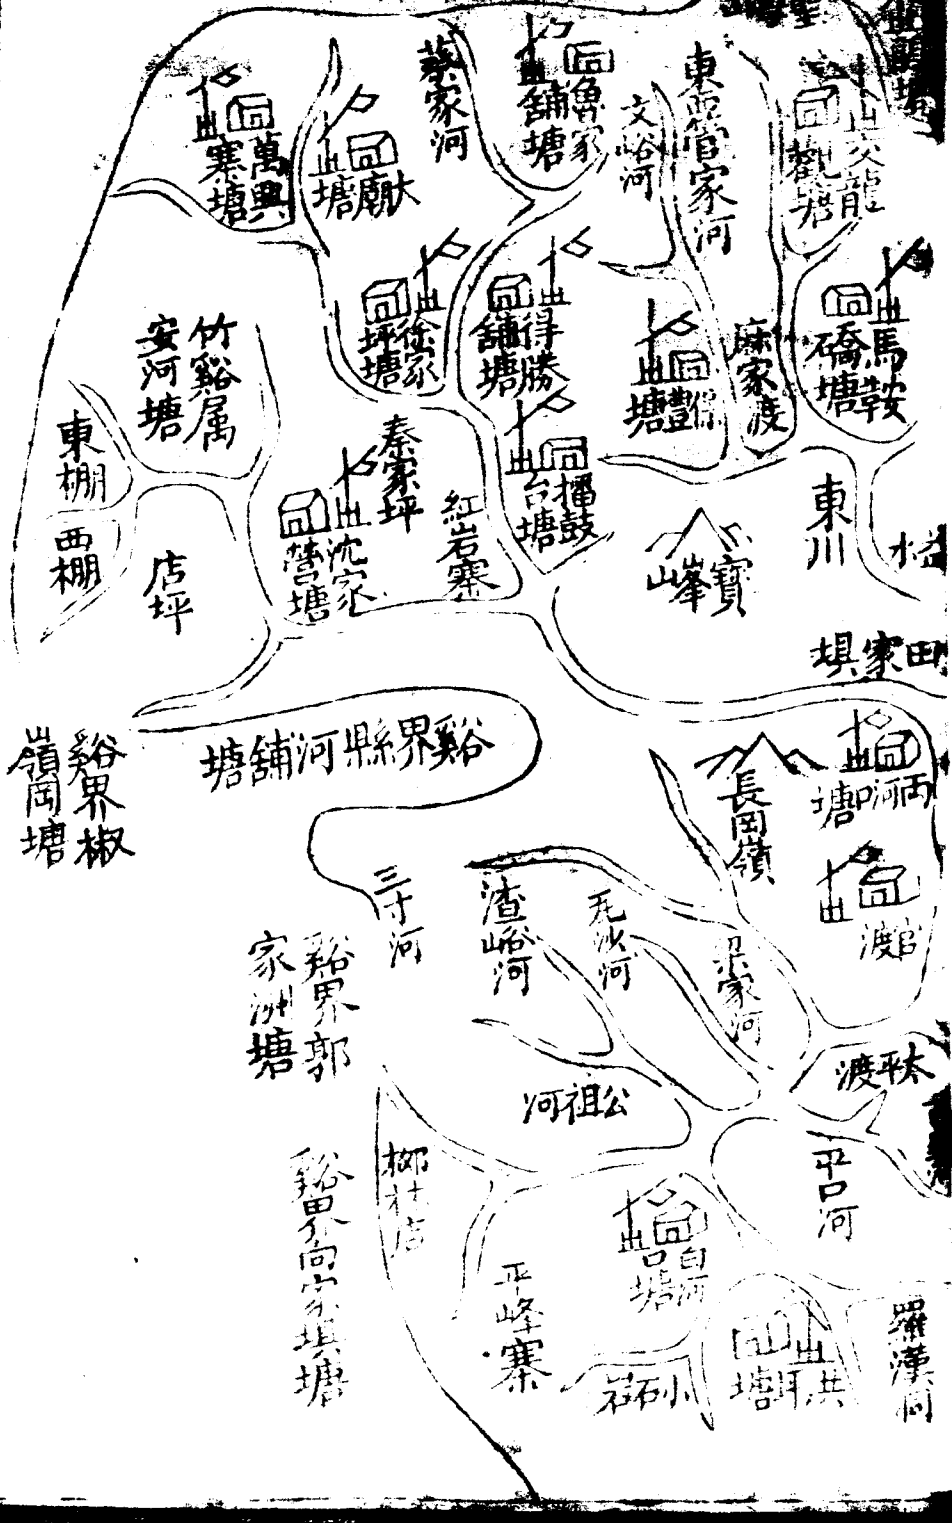 萬興寨塘
大廟塘
蔡家河
魯家舖塘
文峪河
東西管家河
交龍觀塘
徐家坪塘
得勝舖塘
保豐塘
麻家渡
馬鞍礄塘
竹谿属安河塘
東棚
西棚
店坪
秦家坪
沈家營塘
紅岩寨
擂鼓台塘
寶峯山
東川
田家垻
谿界椒嶺岡塘
谿界縣河舖塘
長岡嶺
兩河口塘
官渡
三寸河
渣峪河
梁家河
谿界郭家洲塘
公祖河
太平渡
平口河
柳林店
谿界向家垻塘
白河口塘
平峰寨
小石岩
洪坪塘
羅漢洞